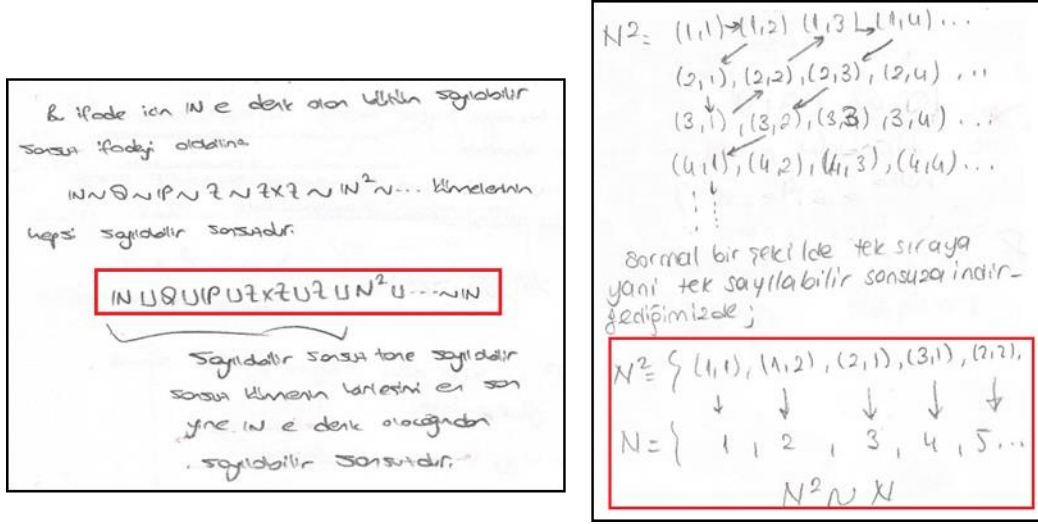 Bu ifade için IN e denk olan bütün sayılabilir
sonsuz ifadeyi
IN ~ Q ~ IP ~ Z ~ Z×Z ~ IN² ~ ... kümelerinin
hepsi sayılabilir sonsuzdur.
IN ∪ Q ∪ IP ∪ Z×Z ∪ Z ∪ N² ∪ ... ~ IN
sayılabilir sonsuz tane sayılabilir
sonsuz kümenin birleşimi en son
yine IN e denk olacağından
sayılabilir sonsuzdur.
N² = (1,1)→(1,2) (1,3)→(1,4) ...
(2,1), (2,2), (2,3), (2,4) , ...
(3,1), (3,2), (3,3), 3,4) ...
(4,1), (4,2), (4,3), (4,4) ...
sormal bir şekilde tek sıraya
yani tek sayılabilir sonsuza indir-
gediğimizde;
N² = { (1,1), (1,2), (2,1), (3,1), (2,2),
↓ ↓ ↓ ↓ ↓
N = { 1 , 2 , 3 , 4 , 5 ...
N² ~ N